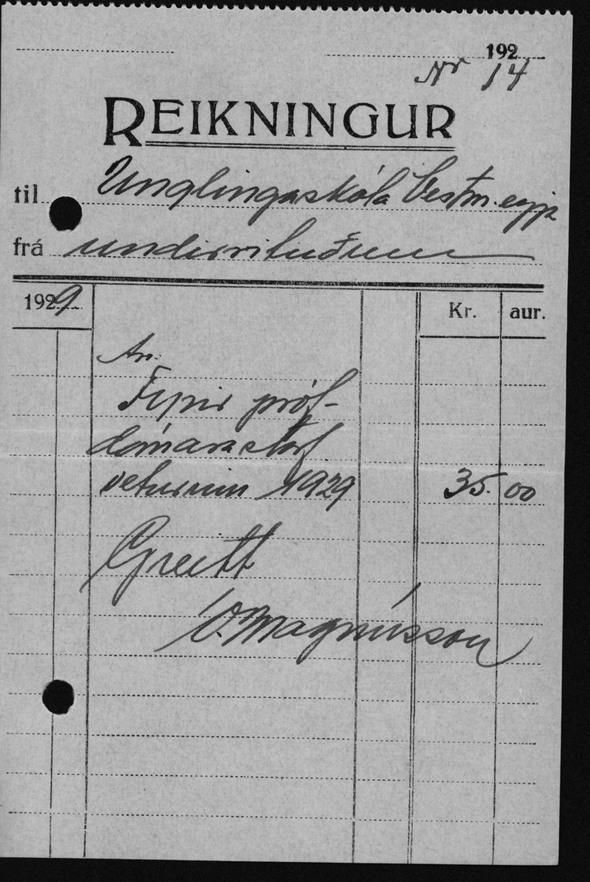 192
Nr 14
REIKNINGUR
til Unglingaskóla Vestm.eyja
frá undirrituðum
1929 Kr. aur.
An.
Fyrir próf-
dómarastörf
veturinn 1929 35. 00
Greitt
Ó. Magnússon